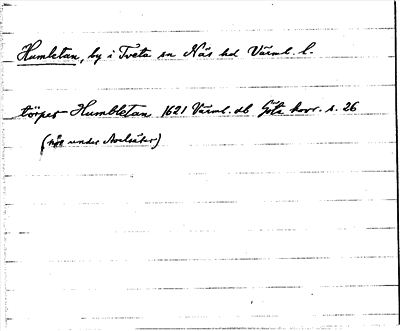 Humletan, by i Tveta sn Näs hd Värml. l.
törpes Humbletan 1621 Värml. db Göta hovr. s. 26
(här under Avelsäter)